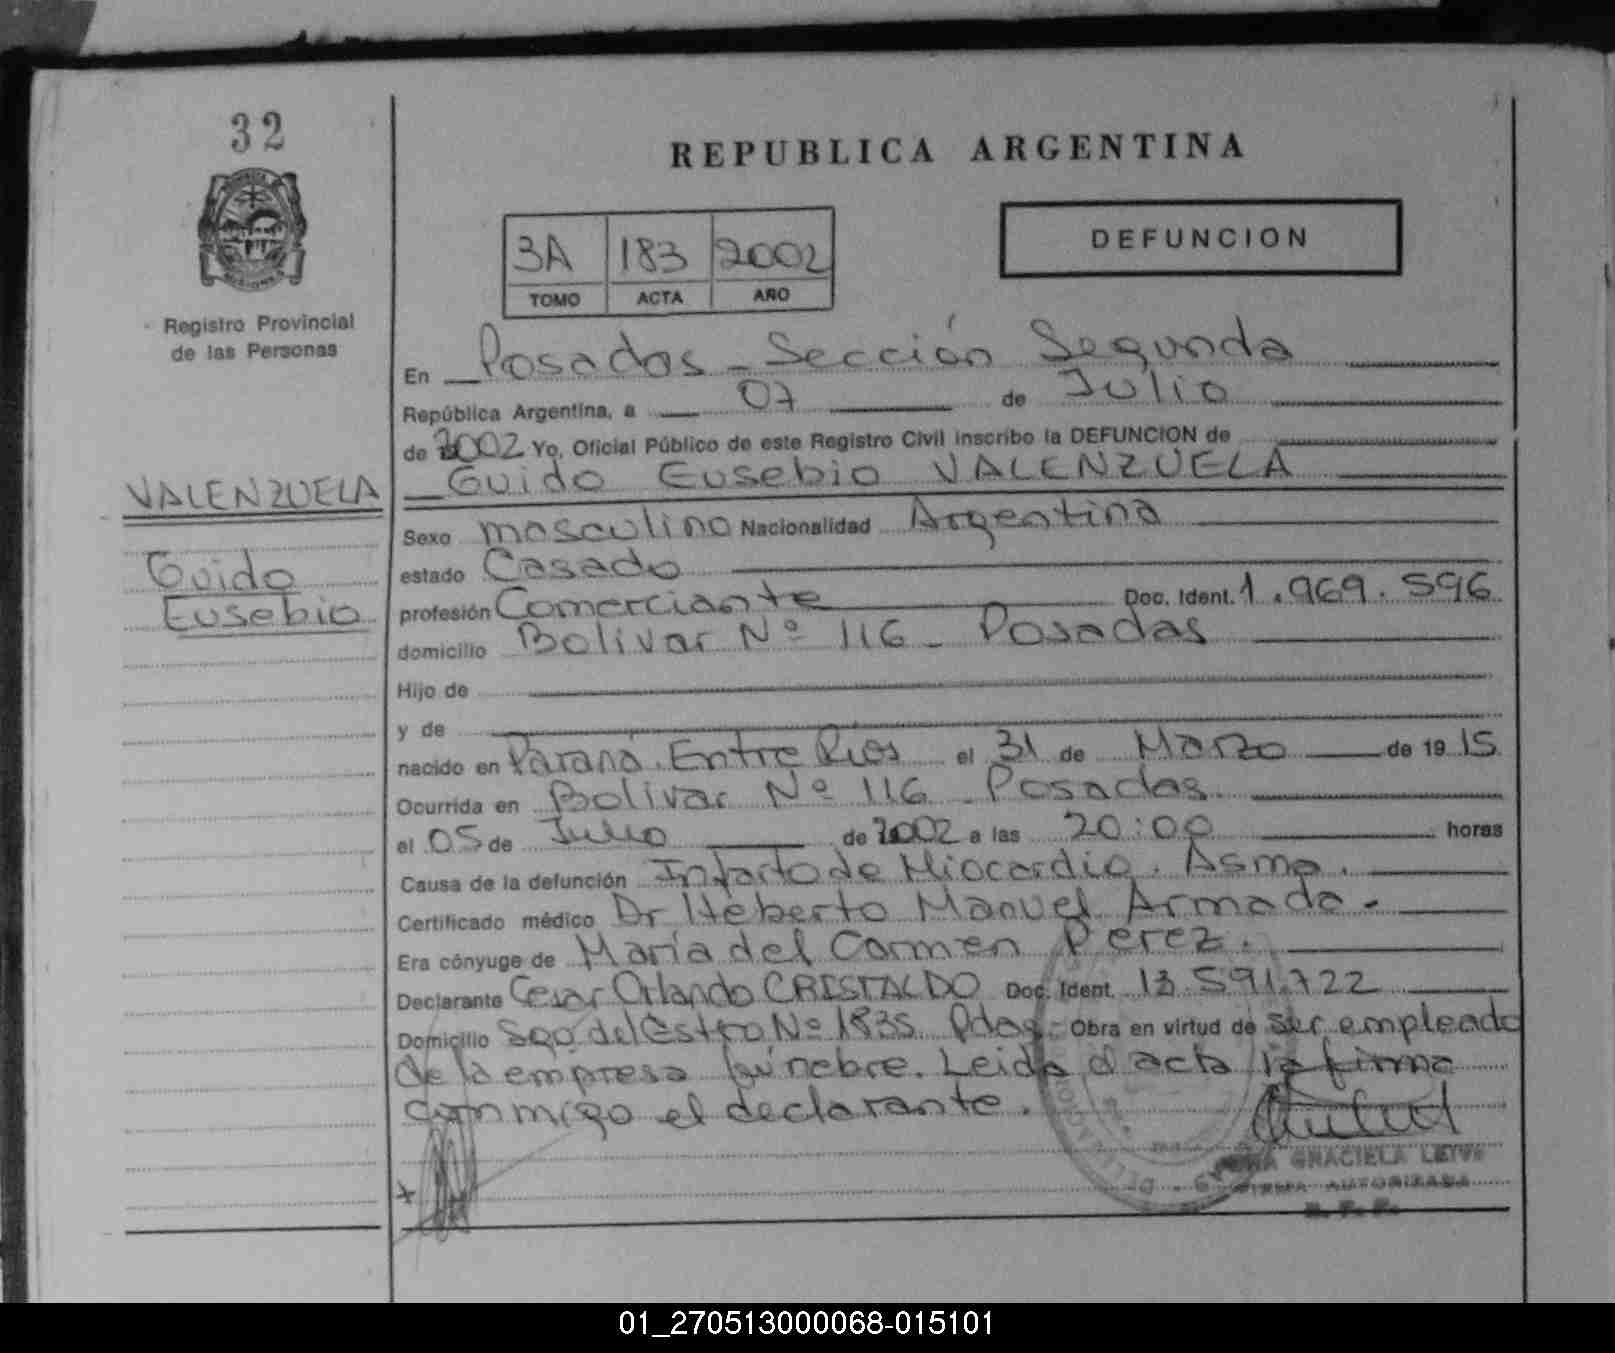 32
REPUBLICA ARGENTINA
DEFUNCION
3A 183 2002
TOMO ACTA AÑO
Registro Provincial
de las Personas
En Posadas - Sección Segunda
República Argentina, a 07 de Julio
de 2002 Yo, Oficial Público de este Registro Civil inscribo la DEFUNCION de
VALENZUELA
Guido Eusebio VALENZUELA
Guido
Eusebio
Sexo masculino Nacionalidad Argentina
estado Casado
profesión Comerciante Doc. Ident. 1.969.596
domicilio Bolivar Nº 116 - Posadas
Hijo de
y de
nacido en Paraná. Entre Rios el 31 de Marzo de 1915
Ocurrida en Bolivar Nº 116 - Posadas.
el 05 de Julio de 2002 a las 20:00 horas
Causa de la defunción Infarto de Miocardio. Asma.
Certificado médico Dr Heberto Manuel Armada.
Era cónyuge de María del Carmen Perez.
Declarante Cesar Orlando CRISTALDO Doc. Ident. 13.591.722
Domicilio Sgo del Estero Nº 1835 Pdas. Obra en virtud de ser empleado
de la empresa fúnebre. Leida el acta la firma
conmigo el declarante.
GRACIELA
FIRMA AUTORIZADA
01_270513000068-015101